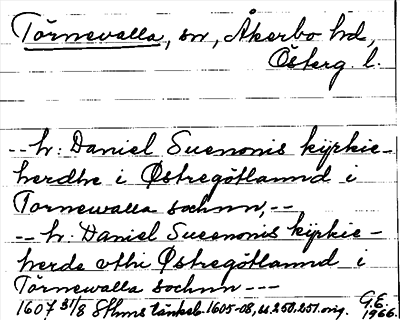 Törnevalla, sn, Åkerbo hd,
Österg. l.
--h: Daniel Suenonis kijrkie-
herdhe i Østregötlannd i
Tornewalla sochnn, --
--h: Daniel Suenonis kijrkie-
herde vthi Østregötlannd i
Törnewalla sochnn ---
1607 31/8 Sthms tänkeb. 1605-08, u 250, 251. orig. G.E. 1966.